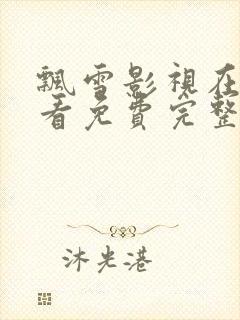 飄雪影視在
看免費完整
沐光港